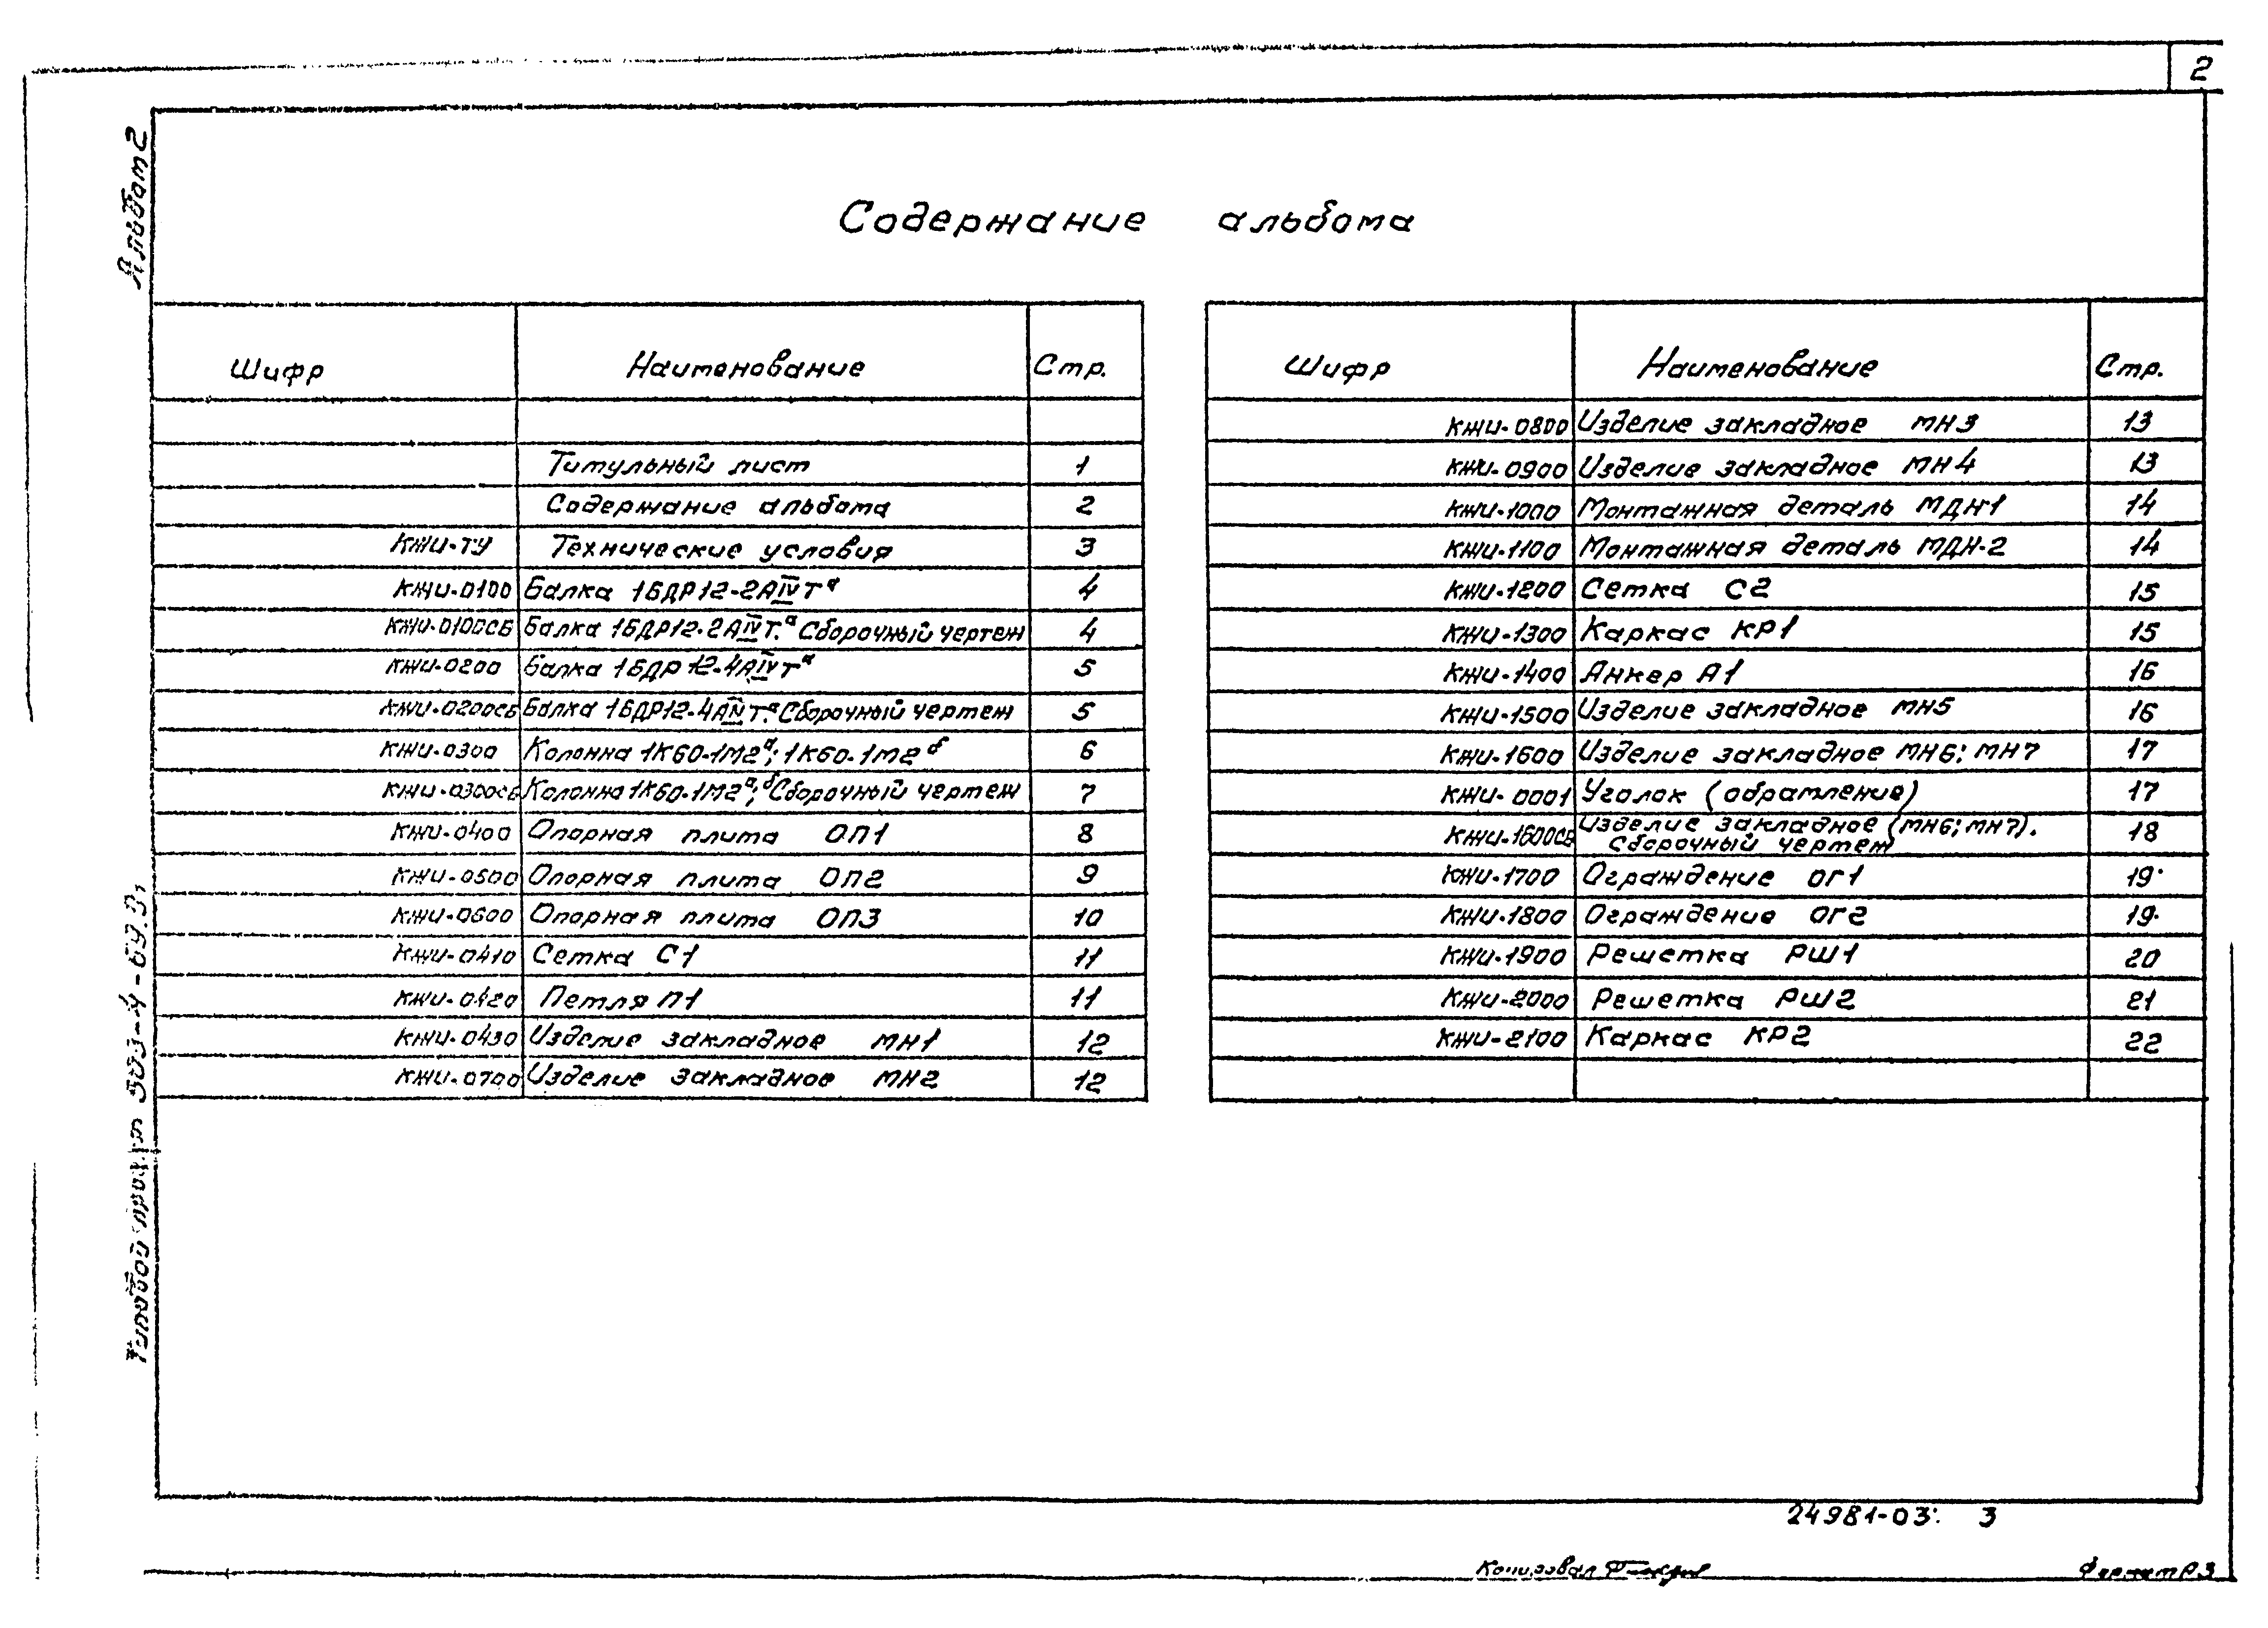 2
Альбом 2
Содержание альбома
Шифр Наименование Стр.
Титульный лист 1
Содержание альбома 2
КЖИ-ТУ Технические условия 3
КЖИ-0100 Балка 1БДР12-2АIVTа 4
КЖИ-0100СБ Балка 1БДР12-2АIVT.а Сборочный чертеж 4
КЖИ-0200 Балка 1БДР12-4АIVTа 5
КЖИ-0200СБ Балка 1БДР12-4АIVT.а Сборочный чертеж 5
КЖИ-0300 Колонна 1К60-1М2а; 1К60-1М2б 6
КЖИ-0300СБ Колонна 1К60-1М2а;б Сборочный чертеж 7
КЖИ-0400 Опорная плита ОП1 8
КЖИ-0500 Опорная плита ОП2 9
КЖИ-0600 Опорная плита ОП3 10
КЖИ-0410 Сетка С1 11
КЖИ-0420 Петля П1 11
КЖИ-0430 Изделие закладное МН1 12
КЖИ-0700 Изделие закладное МН2 12
Шифр Наименование Стр.
КЖИ-0800 Изделие закладное МН3 13
КЖИ-0900 Изделие закладное МН4 13
КЖИ-1000 Монтажная деталь МДН-1 14
КЖИ-1100 Монтажная деталь МДН-2 14
КЖИ-1200 Сетка С2 15
КЖИ-1300 Каркас КР1 15
КЖИ-1400 Анкер А1 16
КЖИ-1500 Изделие закладное МН5 16
КЖИ-1600 Изделие закладное МН6; МН7 17
КЖИ-0001 Уголок (обрамление) 17
КЖИ-1600СБ Изделие закладное (МН6; МН7). 18
Сборочный чертеж
КЖИ-1700 Ограждение ОГ1 19
КЖИ-1800 Ограждение ОГ2 19
КЖИ-1900 Решетка РШ1 20
КЖИ-2000 Решетка РШ2 21
КЖИ-2100 Каркас КР2 22
Типовой проект 503-4-69.91
24981-03 3
Копировал
Формат А3